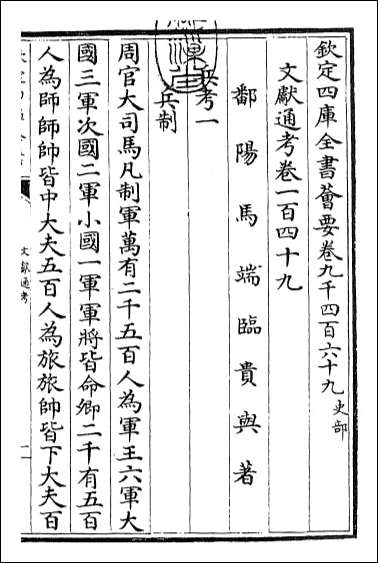 欽定四庫全書薈要卷九千四百六十九 史部
文獻通考卷一百四十九
鄱陽馬端臨貴與著
兵考一
兵制
周官大司馬凡制軍萬有二千五百人為軍王六軍大
國三軍次國二軍小國一軍軍將皆命卿二千有五百
人為師師帥皆中大夫五百人為旅旅帥皆下大夫百
文獻通考